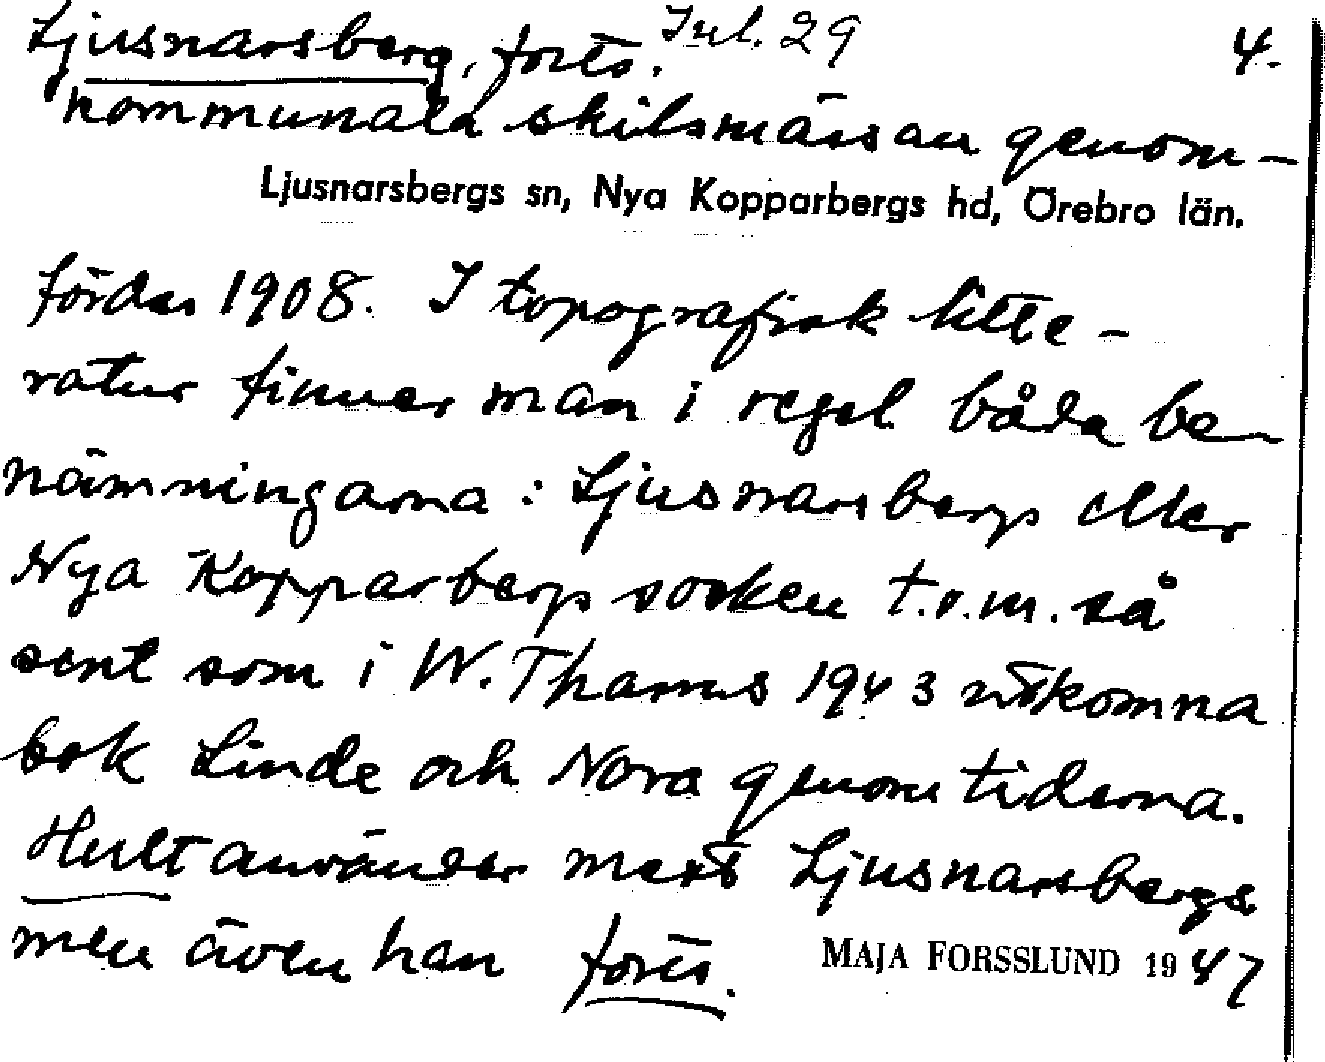 Ljusnarsberg, forts. Jul. 29 4.
kommunala skilsmässan genom-
Ljusnarsbergs sn, Nya Kopparbergs hd, Örebro län.
fördes 1908. I topografisk litte-
ratur finner man i regel båda be-
nämningarna: Ljusnarsbergs eller
Nya Kopparbergs socken t.o.m. så
sent som i W. Thams 1943 utkomna
bok Linde och Nora genom tiderna.
Hult använder mest Ljusnarsbergs
men även han forts.
MAJA FORSSLUND 1947